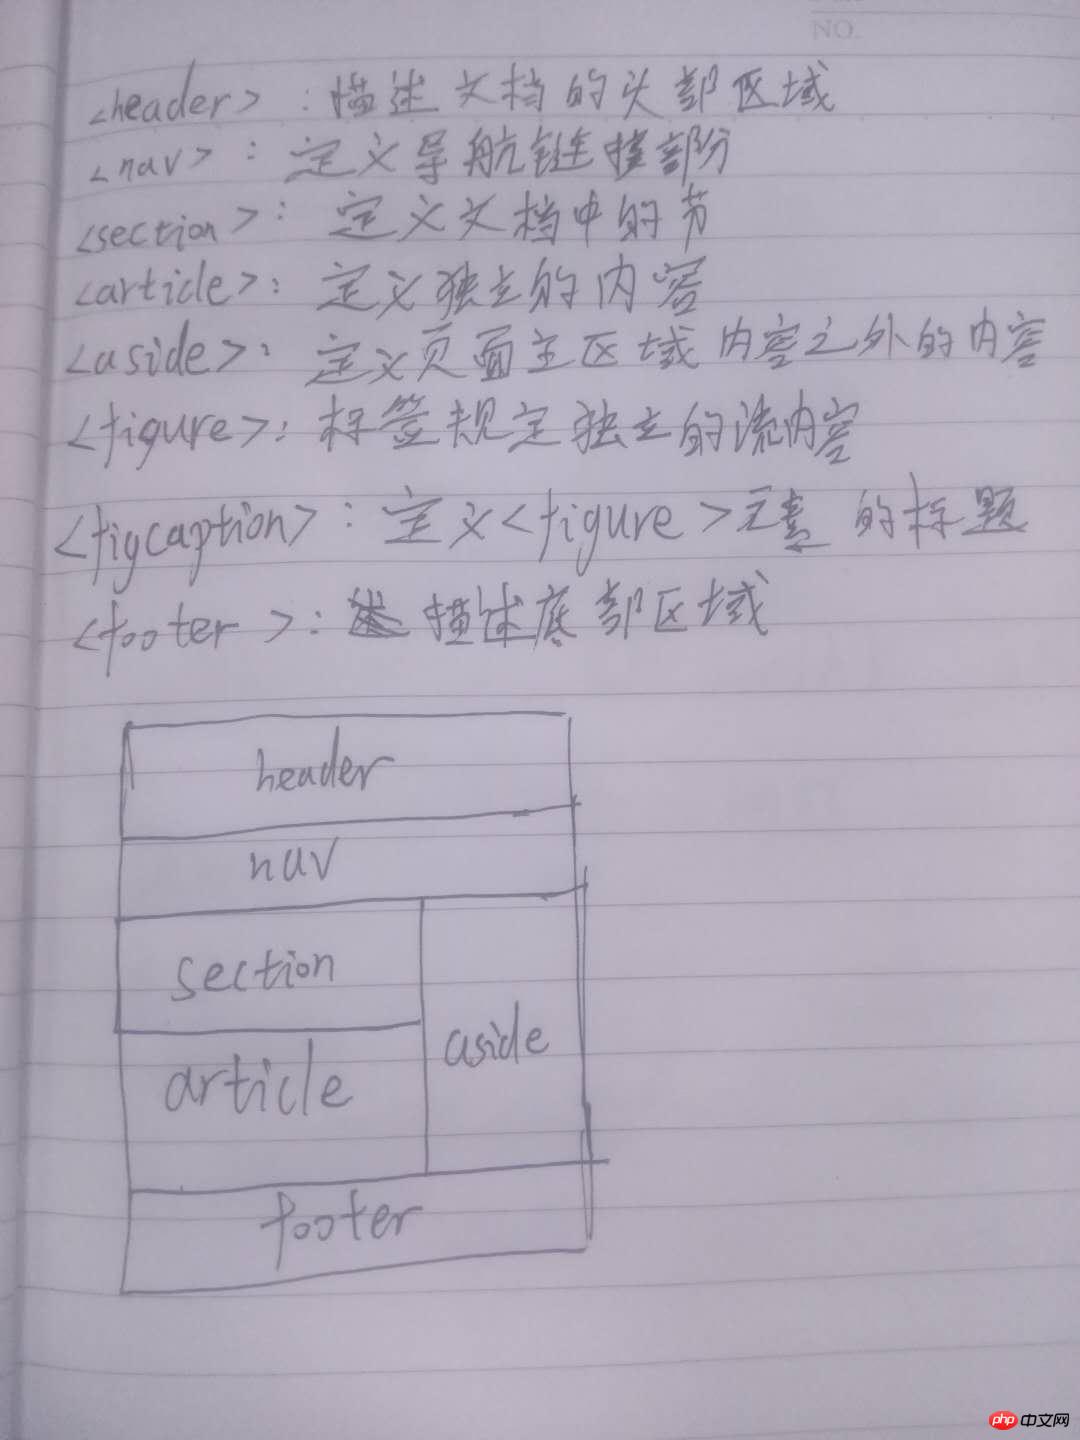 NO.
<header> : 描述文档的头部区域
<nav> : 定义导航链接部分
<section> : 定义文档中的节
<article> : 定义独立的内容
<aside> : 定义页面主区域内容之外的内容
<figure> : 标签规定独立的流内容
<figcaption> : 定义<figure>元素的标题
<footer> : 描述底部区域
header
nav
section
article
aside
footer
php 中文网